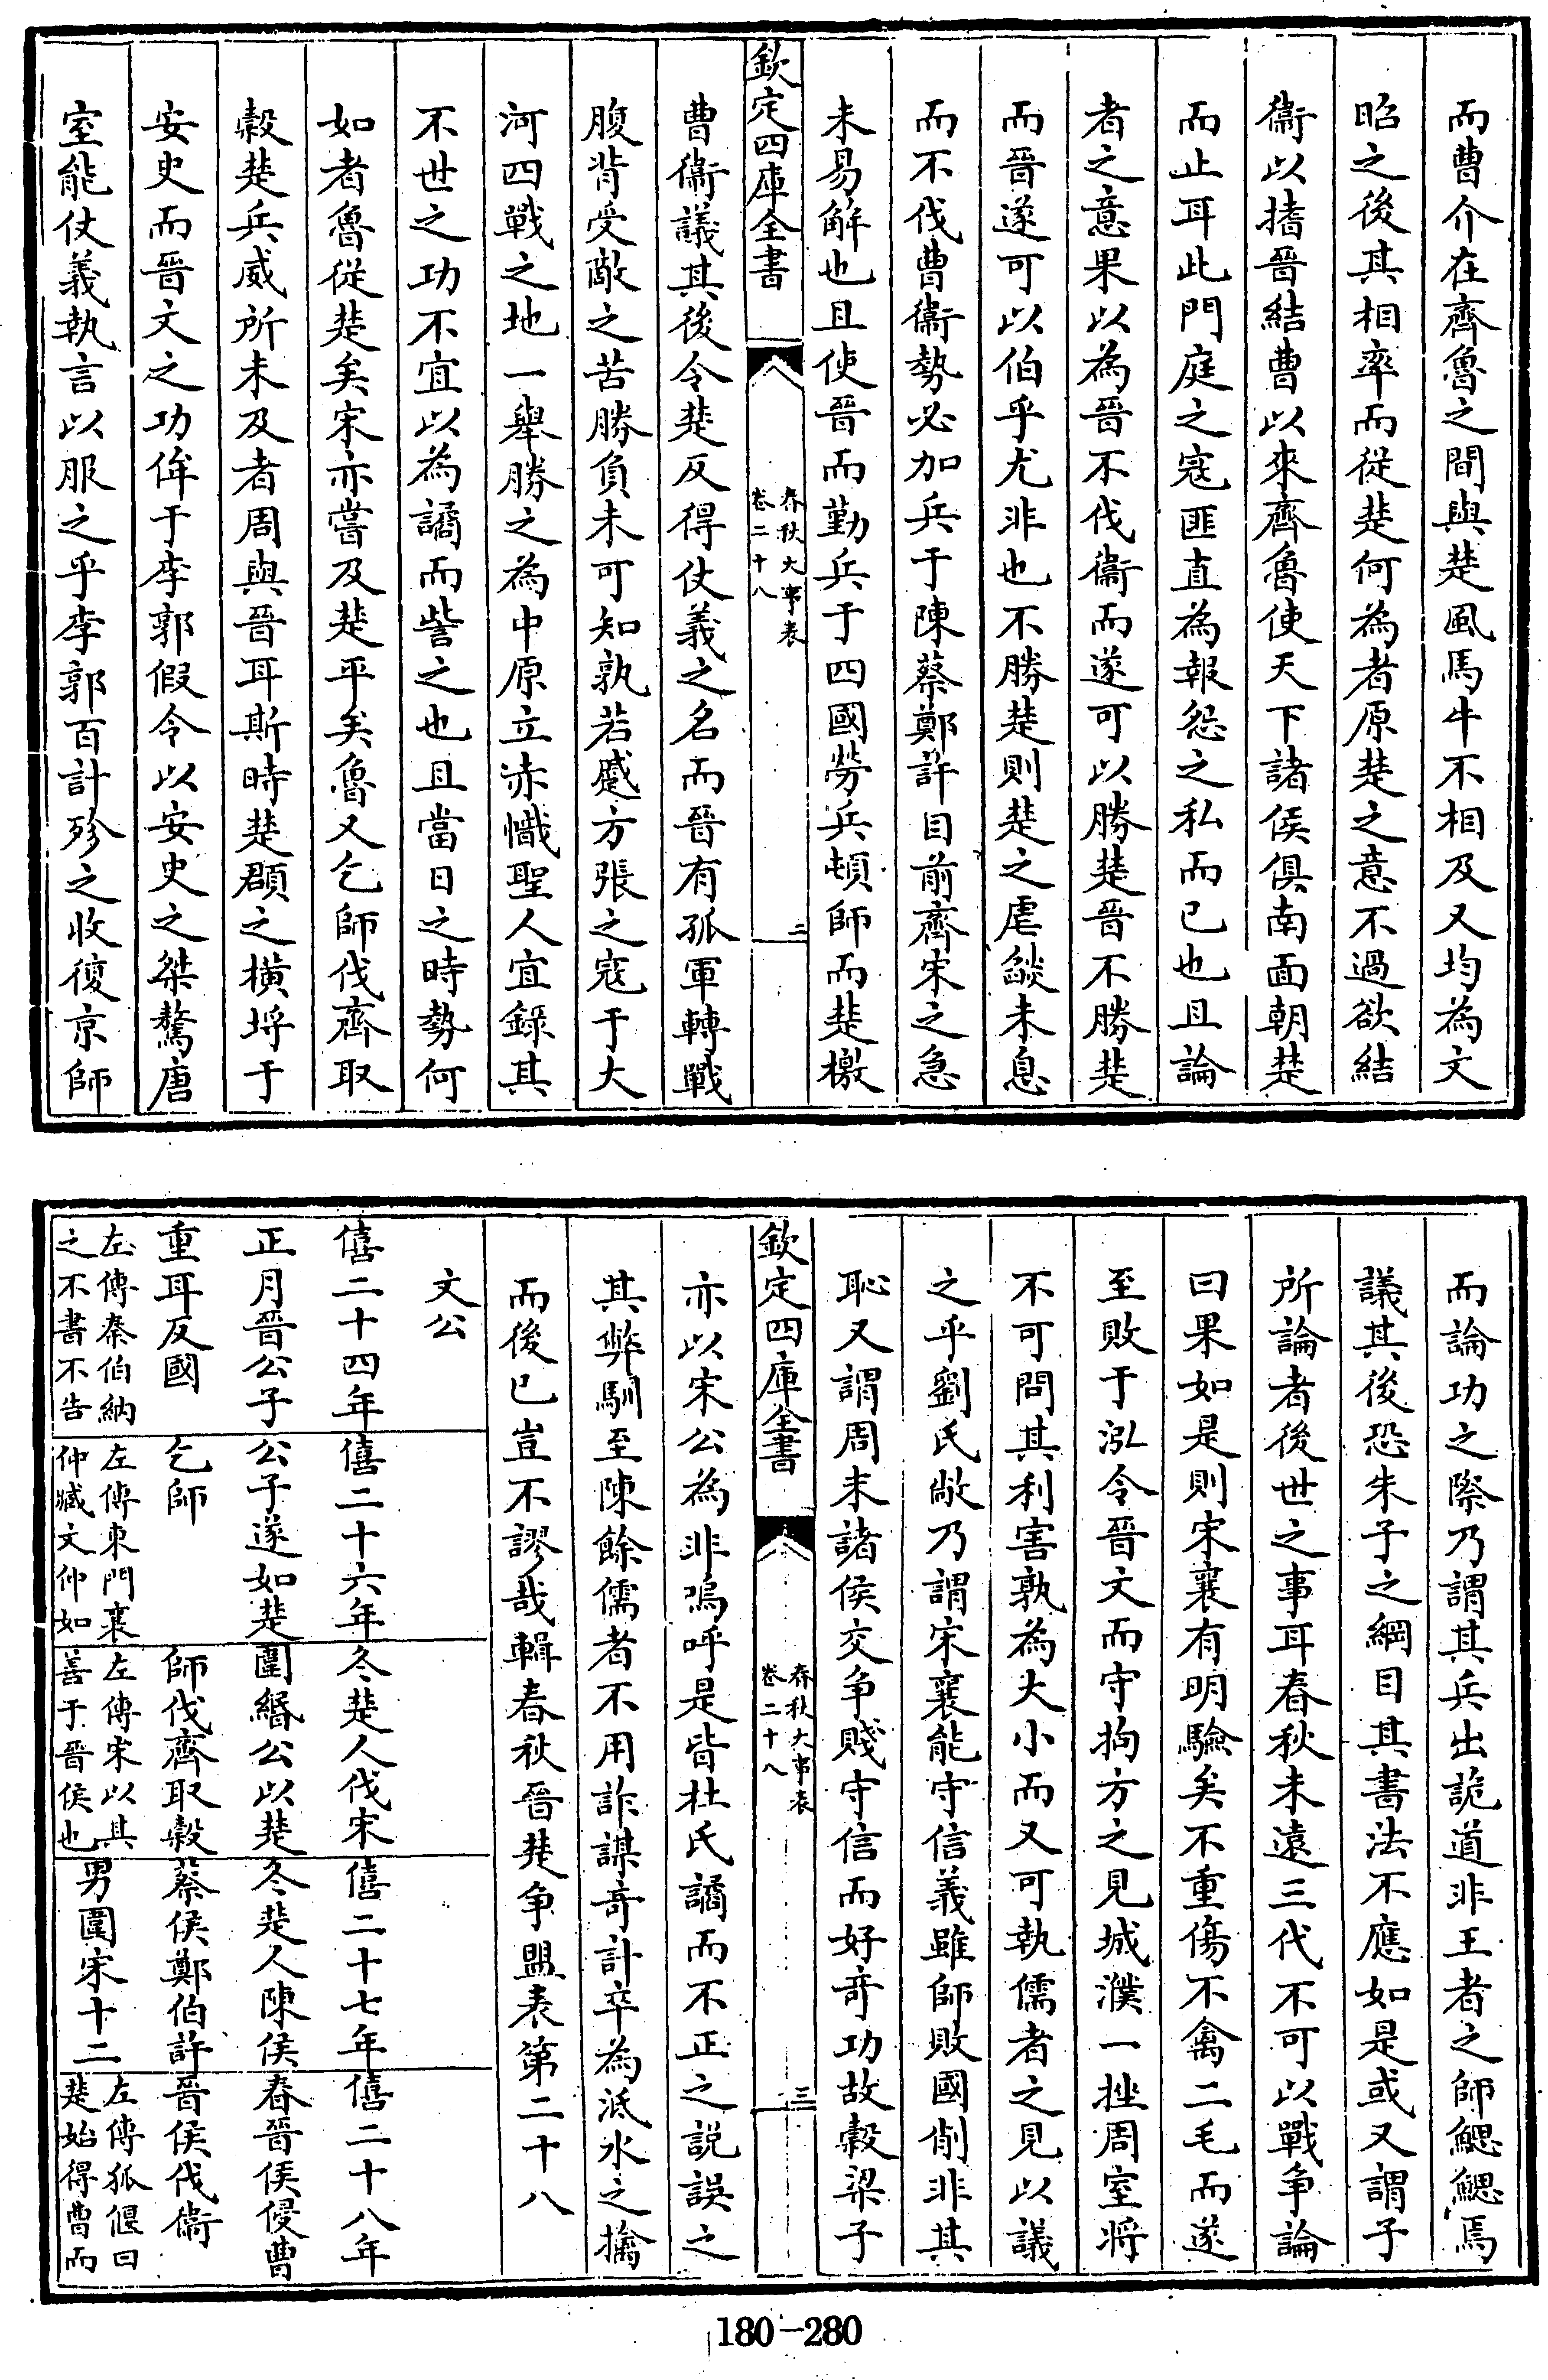 而曹介在齊魯之間與楚風馬牛不相及又均為文
昭之後其相率而從楚何為者原楚之意不過欲結
衞以搘晉結曹以來齊魯使天下諸侯俱南面朝楚
而止耳此門庭之寇匪直為報怨之私而已也且論
者之意果以為晉不伐衞而遂可以勝楚晉不勝楚
而晉遂可以伯乎尤非也不勝楚則楚之虐燄未息
而不伐曹衞勢必加兵于陳蔡鄭許目前齊宋之急
未易解也且使晉而勤兵于四國勞兵頓師而楚檄
欽定四庫全書
春秋大事表
卷二十八
三
曹衞議其後令楚反得仗義之名而晉有孤軍轉戰
腹背受敵之苦勝負未可知孰若蹙方張之寇于大
河四戰之地一舉勝之為中原立赤幟聖人宜錄其
不世之功不宜以為譎而訾之也且當日之時勢何
如者魯從楚矣宋亦嘗及楚平矣魯又乞師伐齊取
穀楚兵威所未及者周與晉耳斯時楚頵之橫埒于
安史而晉文之功侔于李郭假令以安史之桀驁唐
室能仗義執言以服之乎李郭百計殄之收復京師
而論功之際乃謂其兵出詭道非王者之師鰓鰓焉
議其後恐朱子之綱目其書法不應如是或又謂子
所論者後世之事耳春秋未遠三代不可以戰爭論
曰果如是則宋襄有明驗矣不重傷不禽二毛而遂
至敗于泓令晉文而守拘方之見城濮一挫周室將
不可問其利害孰為大小而又可執儒者之見以議
之乎劉氏敞乃謂宋襄能守信義雖師敗國削非其
恥又謂周末諸侯交爭賤守信而好奇功故穀梁子
欽定四庫全書
春秋大事表
卷二十八
三
亦以宋公為非嗚呼是皆杜氏譎而不正之説誤之
其弊馴至陳餘儒者不用詐謀奇計卒為泜水之擒
而後已豈不謬哉輯春秋晉楚爭盟表第二十八
文公
僖二十四年
正月晉公子
重耳反國
左傳秦伯納
之不書不告
僖二十六年
公子遂如楚
乞師
左傳東門襄
仲臧文仲如
冬楚人伐宋
圍緡公以楚
師伐齊取穀
左傳宋以其
善于晉侯也
僖二十七年
冬楚人陳侯
蔡侯鄭伯許
男圍宋十二
僖二十八年
春晉侯侵曹
晉侯伐衞
左傳狐偃曰
楚始得曹而
180-280